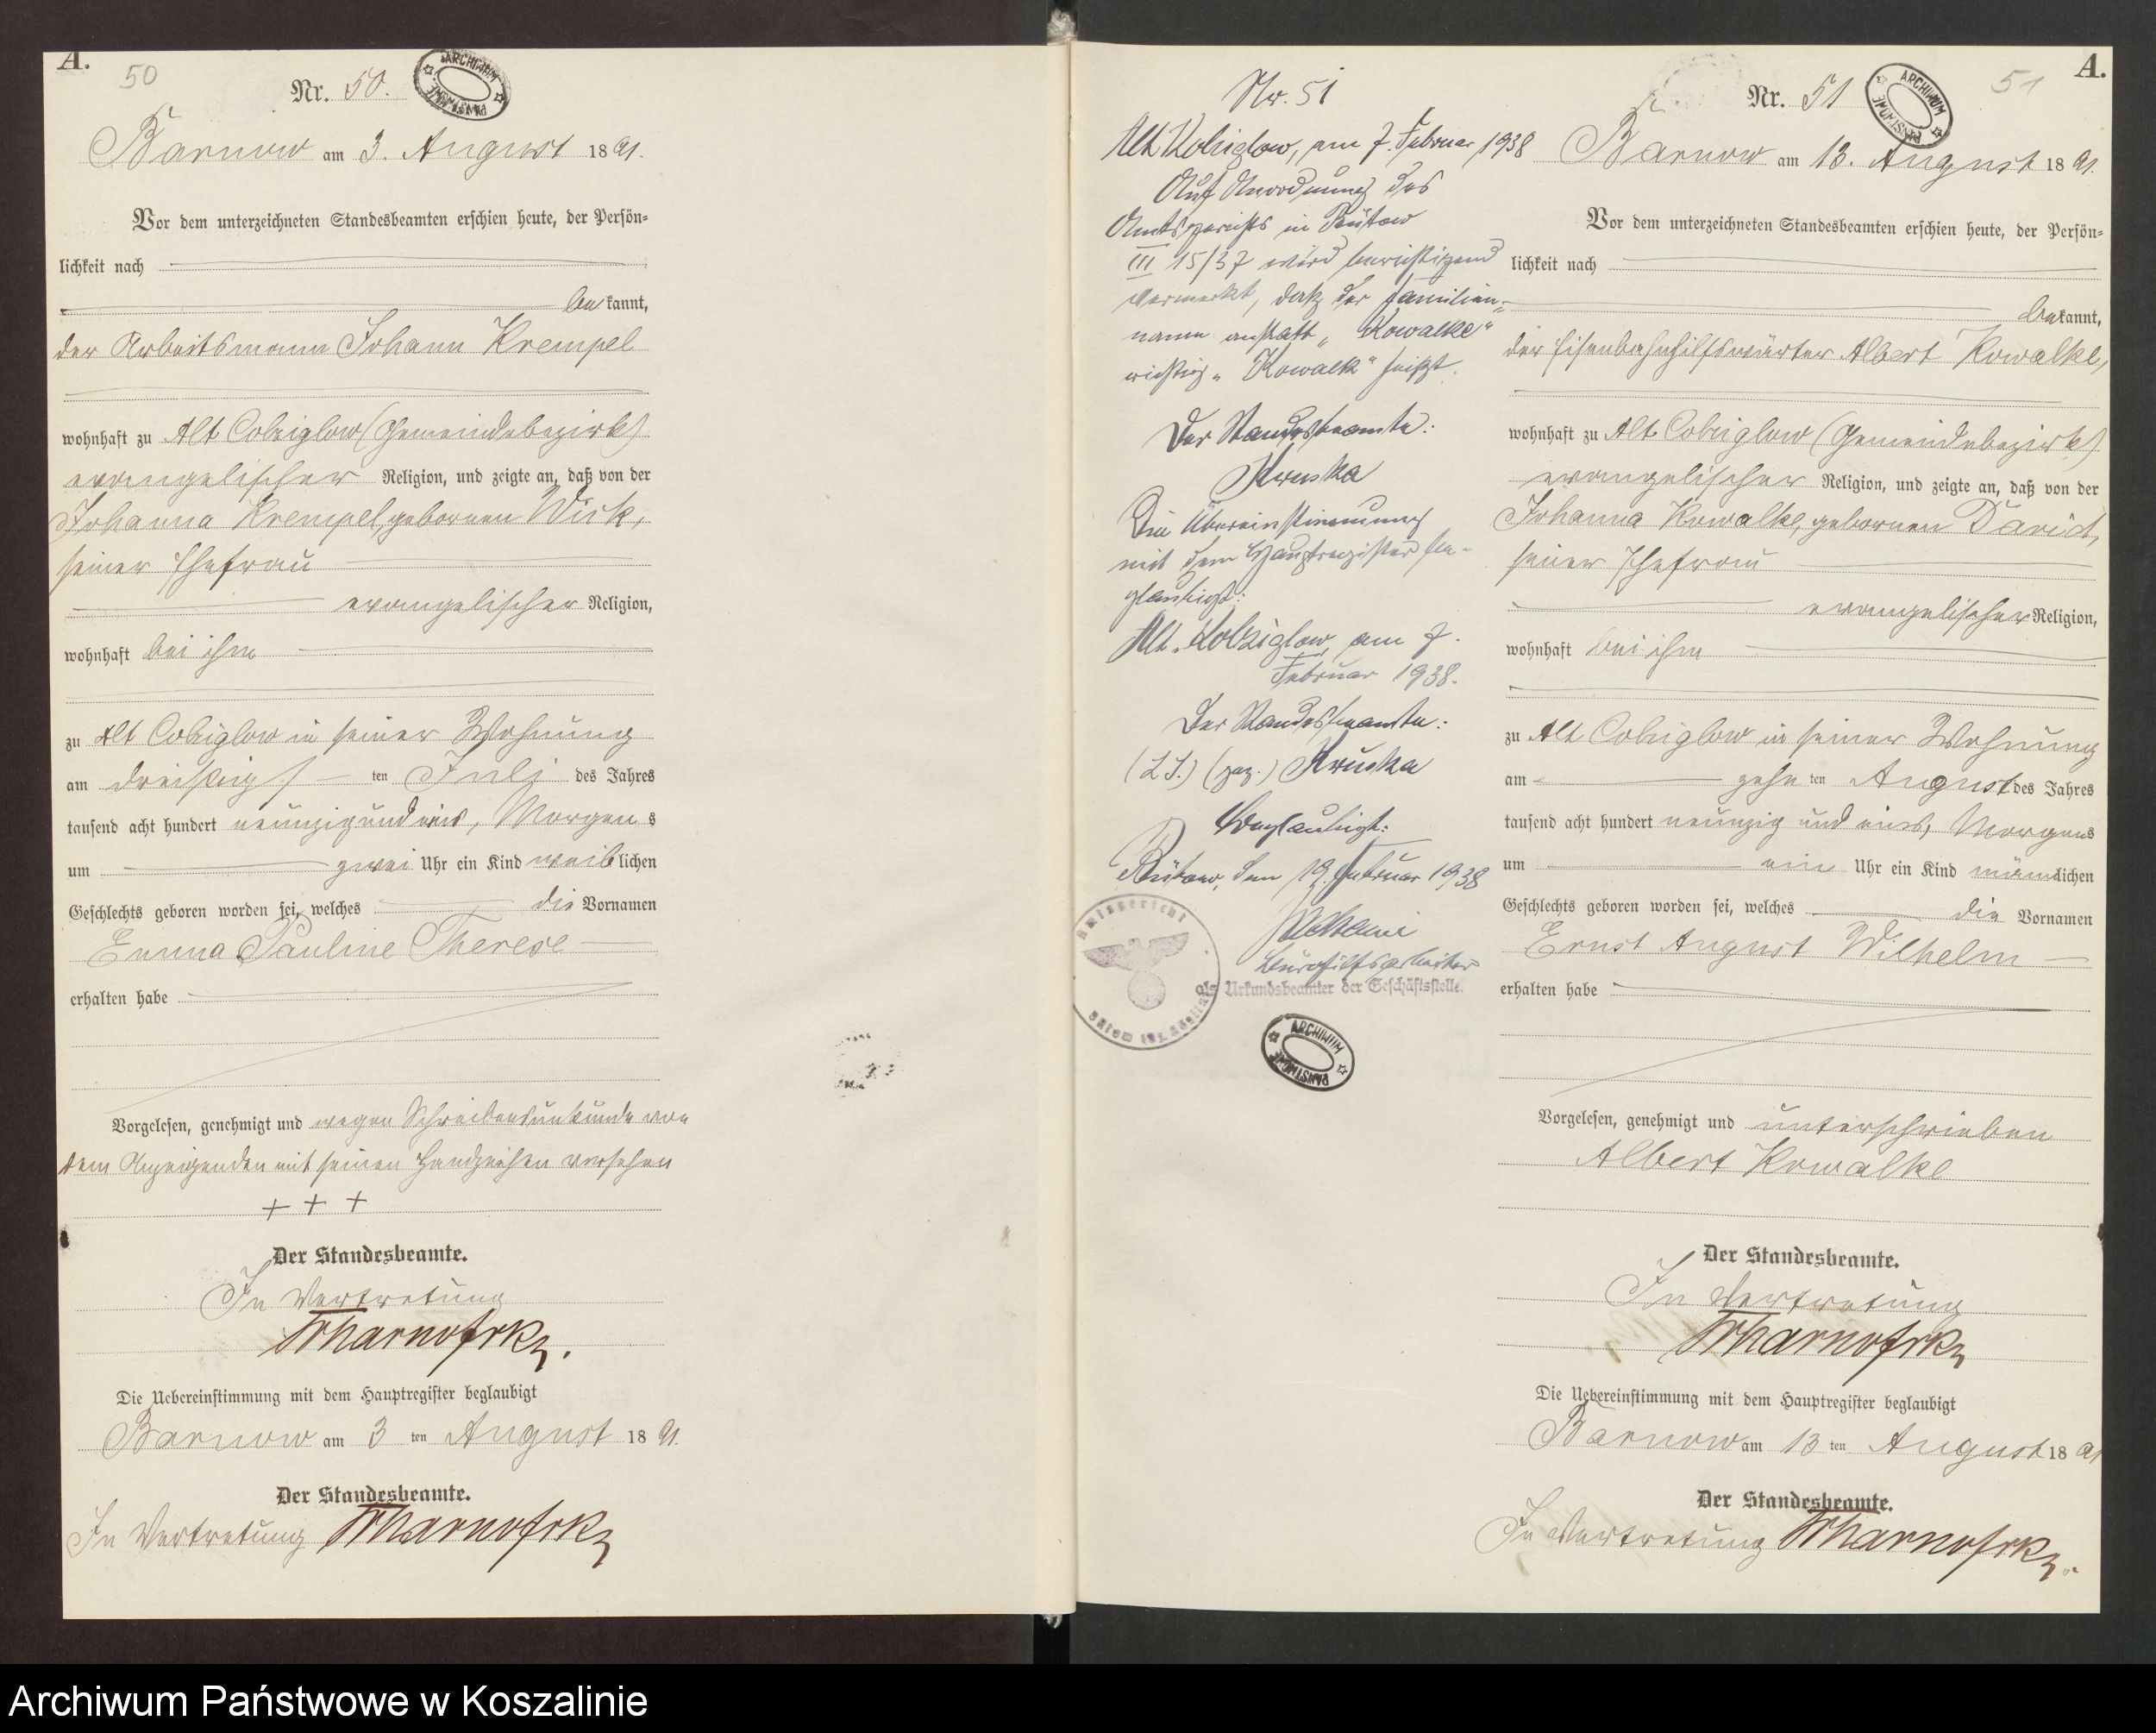 A.
50
Nr. 50.
ARCHIWUM PAŃSTWOWE
Barnow am 3. August 1891.
Vor dem unterzeichneten Standesbeamten erschien heute, der Persön=
lichkeit nach
bekannt,
der Arbeitsmann Johann Krempel
wohnhaft zu Alt Colziglow (Gemeindebezirk)
evangelischer Religion, und zeigte an, daß von der
Johanna Krempel, geborenen Wick,
seiner Ehefrau
evangelischer Religion,
wohnhaft bei ihm
zu Alt Colziglow in seiner Wohnung
am dreißigsten Juli des Jahres
tausend acht hundert neunzig und eins, Morgens
um zwei Uhr ein Kind weiblichen
Geschlechts geboren worden sei, welches die Vornamen
Emma Pauline Therese
erhalten habe
Vorgelesen, genehmigt und wegen Schreibensunkunde von
dem Anzeigenden mit seinen Handzeichen versehen
+ + +
Der Standesbeamte.
In Vertretung
Die Uebereinstimmung mit dem Hauptregister beglaubigt
Barnow am 3 ten August 1891.
Der Standesbeamte.
In Vertretung
Nr. 51
Alt Kolziglow, am 7. Februar 1938
Auf Anordnung des
Amtsgerichts in Bütow
III 15/37 wird berichtigend
vermerkt, daß der Familien-
name anstatt „Kowalke"
richtig „Kowalk" heißt.
Der Standesbeamte:
Kruska
Die Übereinstimmung
mit dem Hauptregister be-
glaubigt:
Alt-Kolziglow, am 7.
Februar 1938.
Der Standesbeamte:
(L.S.) (gez.) Kruska
Beglaubigt:
Bütow, den 19. Februar 1938
Bürohilfsarbeiter
als Urkundsbeamter der Geschäftsstelle.
Amtsgericht
ARCHIWUM PAŃSTWOWE
A.
51
Nr. 51
ARCHIWUM PAŃSTWOWE
Barnow am 13. August 1891.
Vor dem unterzeichneten Standesbeamten erschien heute, der Persön=
lichkeit nach
bekannt,
der Eisenbahnhilfswärter Albert Kowalke,
wohnhaft zu Alt Colziglow (Gemeindebezirk)
evangelischer Religion, und zeigte an, daß von der
Johanna Kowalke, geborenen David,
seiner Ehefrau
evangelischer Religion,
wohnhaft bei ihm
zu Alt Colziglow in seiner Wohnung
am zehnten August des Jahres
tausend acht hundert neunzig und eins, Morgens
um ein Uhr ein Kind männlichen
Geschlechts geboren worden sei, welches die Vornamen
Ernst August Wilhelm
erhalten habe
Vorgelesen, genehmigt und unterschrieben
Albert Kowalke
Der Standesbeamte.
In Vertretung
Die Uebereinstimmung mit dem Hauptregister beglaubigt
Barnow am 13 ten August 1891
Der Standesbeamte.
In Vertretung
Archiwum Państwowe w Koszalinie